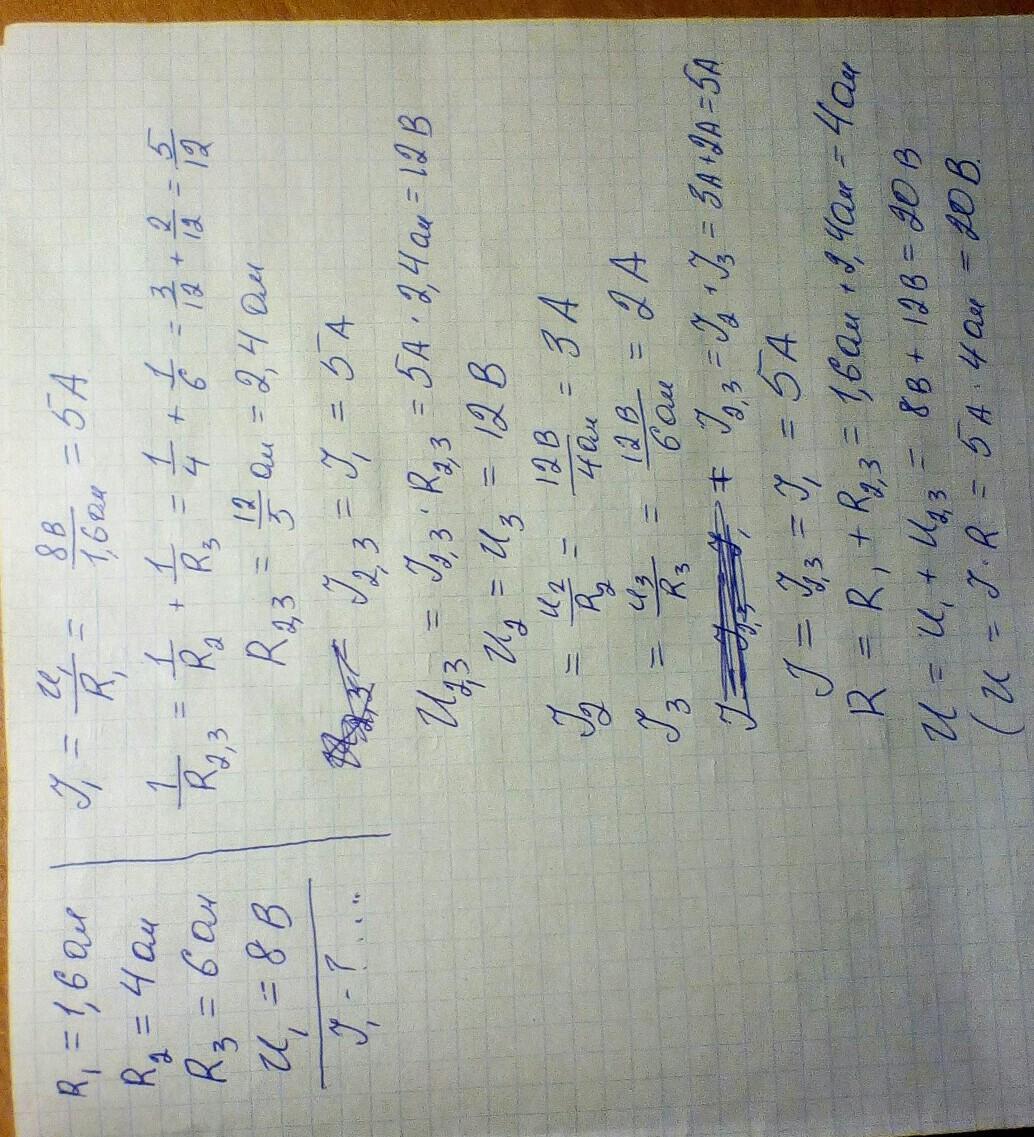 R₁ = 1,6 Ом
R₂ = 4 Ом
R₃ = 6 Ом
U₁ = 8 В
J₁ - ? ...
J₁ = U₁/R₁ = 8В/1,6Ом = 5А
1/R₂,₃ = 1/R₂ + 1/R₃ = 1/4 + 1/6 = 3/12 + 2/12 = 5/12
R₂,₃ = 12/5 Ом = 2,4 Ом
J₂,₃ = J₁ = 5А
U₂,₃ = J₂,₃ · R₂,₃ = 5А · 2,4 Ом = 12 В
U₂ = U₃ = 12 В
J₂ = U₂/R₂ = 12В/4Ом = 3 А
J₃ = U₃/R₃ = 12В/6Ом = 2 А
J₂,₃ = J₂ + J₃ = 3А + 2А = 5А
J = J₂,₃ = J₁ = 5А
R = R₁ + R₂,₃ = 1,6 Ом + 2,4 Ом = 4 Ом
U = U₁ + U₂,₃ = 8 В + 12 В = 20 В
(U = J · R = 5А · 4 Ом = 20 В.